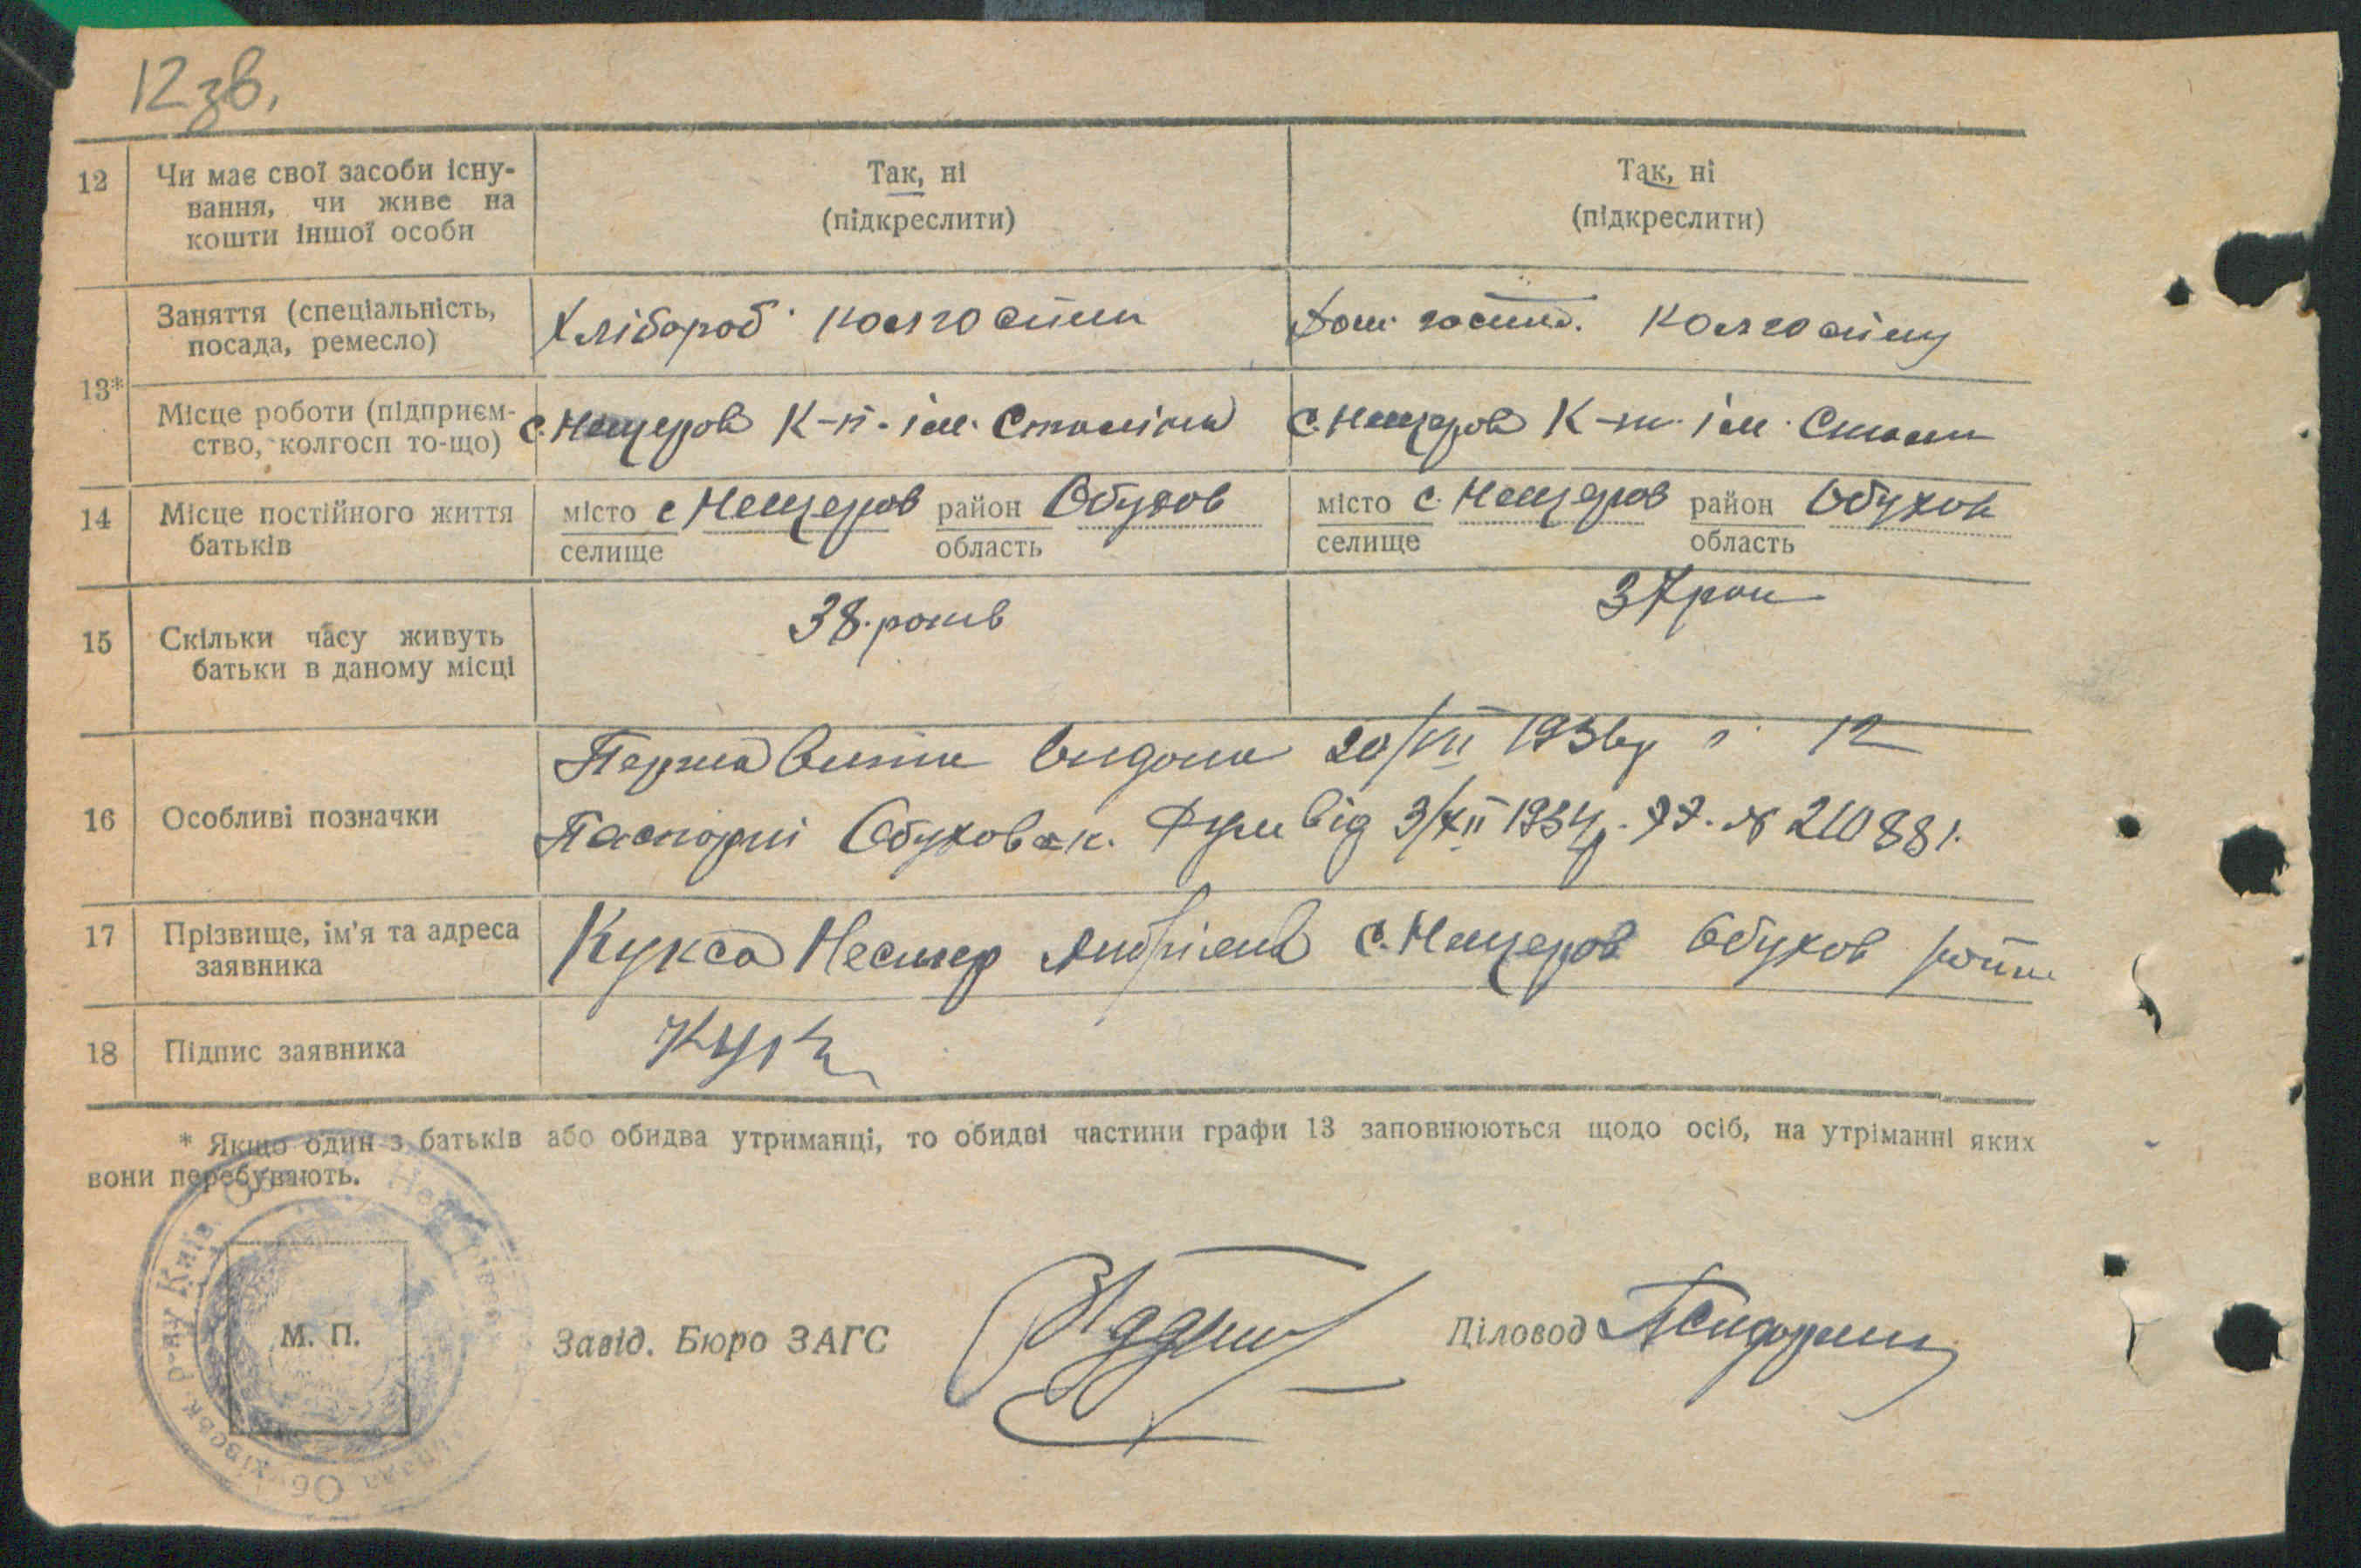 12зв.
12 Чи має свої засоби існу-
вання, чи живе на
кошти іншої особи
Так, ні
(підкреслити)
Так, ні
(підкреслити)
13*
Заняття (спеціальність,
посада, ремесло)
Хлібороб колгоспни
Дом. госпо. колгоспну
Місце роботи (підприєм-
ство, колгосп то-що)
с. Нещеров К-п. ім. Сталіна
с. Нещеров К-п. ім. Сталін
14 Місце постійного життя
батьків
місто с Нещеров район Обухов
селище область
місто с. Нещеров район Обухов
селище область
15 Скільки часу живуть
батьки в даному місці
38 років
37 рок
16 Особливі позначки
видана 20/VII 1936р 12
Паспорт Обуховск. від 3/XII 1934р. № 210881.
17 Прізвище, ім'я та адреса
заявника
Кукса Нестер Андріев с. Нещеров Обухов район
18 Підпис заявника
* Якщо один з батьків або обидва утриманці, то обидві частини графи 13 заповнюються щодо осіб, на утріманні яких
вони перебувають.
р-ну Київ. Об
М. П.
Завід. Бюро ЗАГС
Діловод